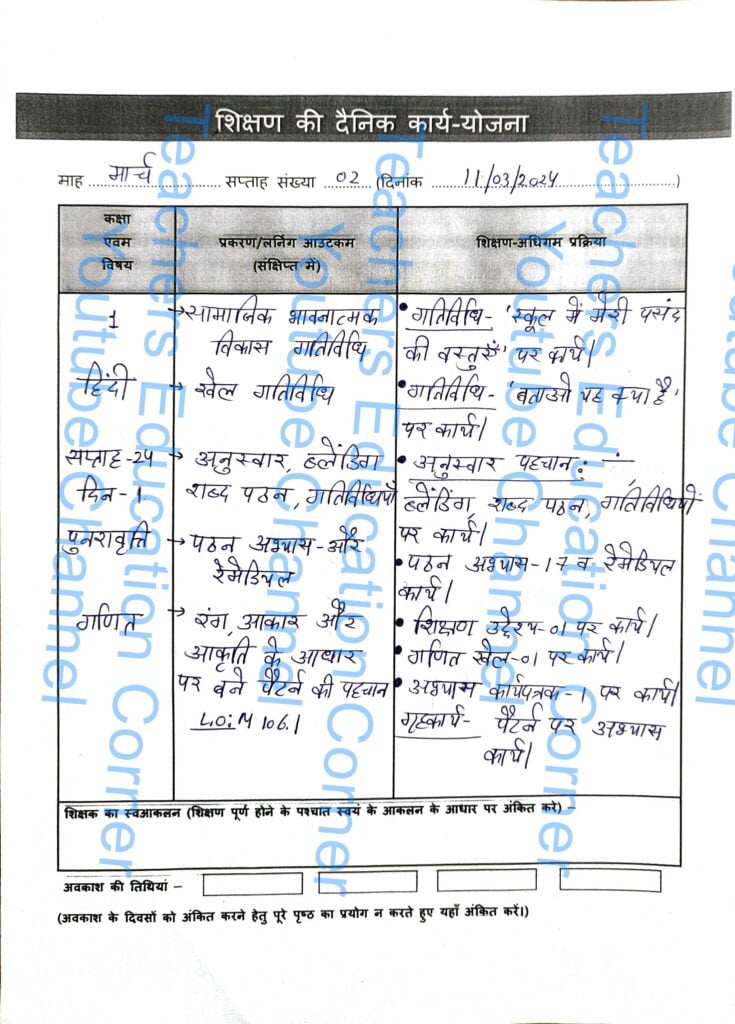 शिक्षण की दैनिक कार्य-योजना
माह मार्च सप्ताह संख्या 02 (दिनांक 11/03/2024)
कक्षा
एवम
विषय
प्रकरण/लर्निग आउटकम
(संक्षिप्त में)
शिक्षण-अधिगम प्रक्रिया
1
→ सामाजिक भावनात्मक
विकास गतिविधि
• गतिविधि- 'स्कूल में मेरी पसंद
की वस्तुएँ' पर कार्य।
हिंदी
→ खेल गतिविधि
• गतिविधि- 'बताओ यह क्या है'
पर कार्य।
सप्ताह-24
दिन-1
→ अनुस्वार, ब्लेंडिंग
शब्द पठन, गतिविधियाँ
• अनुस्वार पहचान : ं
ब्लेंडिंग, शब्द पठन, गतिविधियों
पर कार्य।
पुनरावृत्ति
→ पठन अभ्यास-और
रेमेडियल
• पठन अभ्यास-17 व रेमेडियल
कार्य।
गणित
→ रंग, आकार और
आकृति के आधार
पर बने पैटर्न की पहचान
L.O: M 106.1
• शिक्षण उद्देश्य-01 पर कार्य।
• गणित खेल-01 पर कार्य।
• अभ्यास कार्यपत्रक-1 पर कार्य।
गृहकार्य- पैटर्न पर अभ्यास
कार्य।
शिक्षक का स्वआकलन (शिक्षण पूर्ण होने के पश्चात स्वयं के आकलन के आधार पर अंकित करे) –
अवकाश की तिथियां –
(अवकाश के दिवसों को अंकित करने हेतु पूरे पृष्ठ का प्रयोग न करते हुए यहाँ अंकित करें।)
Teachers Education Corner
Youtube Channel
Teachers Education Corner
Youtube Channel
Teachers Education Corner
Youtube Channel